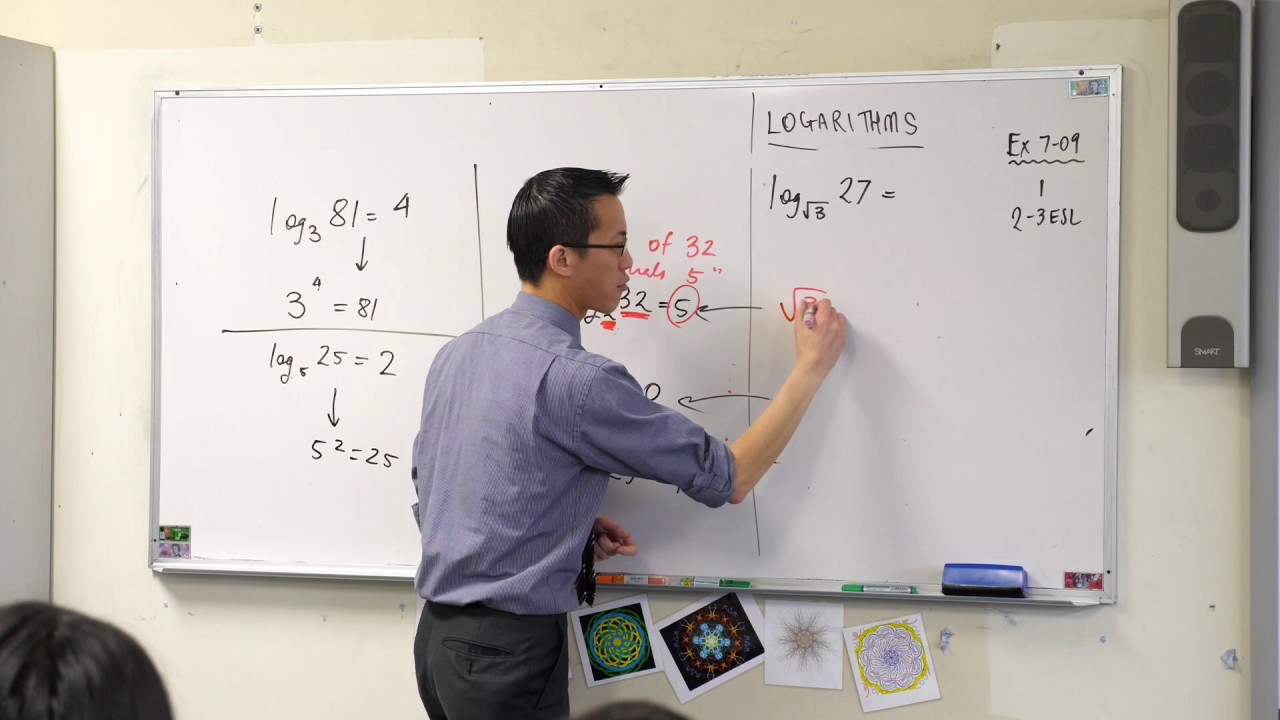 log₃ 81 = 4
↓
3⁴ = 81
log₅ 25 = 2
↓
5² = 25
of 32
5"
2 32 = 5
0
LOGARITHMS
log√3 27 =
√
Ex 7-09
1
2-3 ESL
SMART